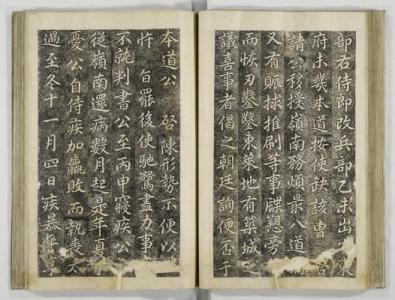 部右侍郎改兵部乙未出
府未幾本道按使缺該曹
請公移授嶺南務煩最八道
又有賑捄推刷等事牒愬旁
而恢刃鑿鑿東萊地有築城之
議喜事者倡之朝廷詢便否于
本道公 啓陳形勢不便以
忤 旨罷後使馳騖盡力事
不就判書公至丙申寢疾公
從嶺南還病數月起是年夏
憂公自侍疾加羸敗而執
過至冬十一月四日疾暴